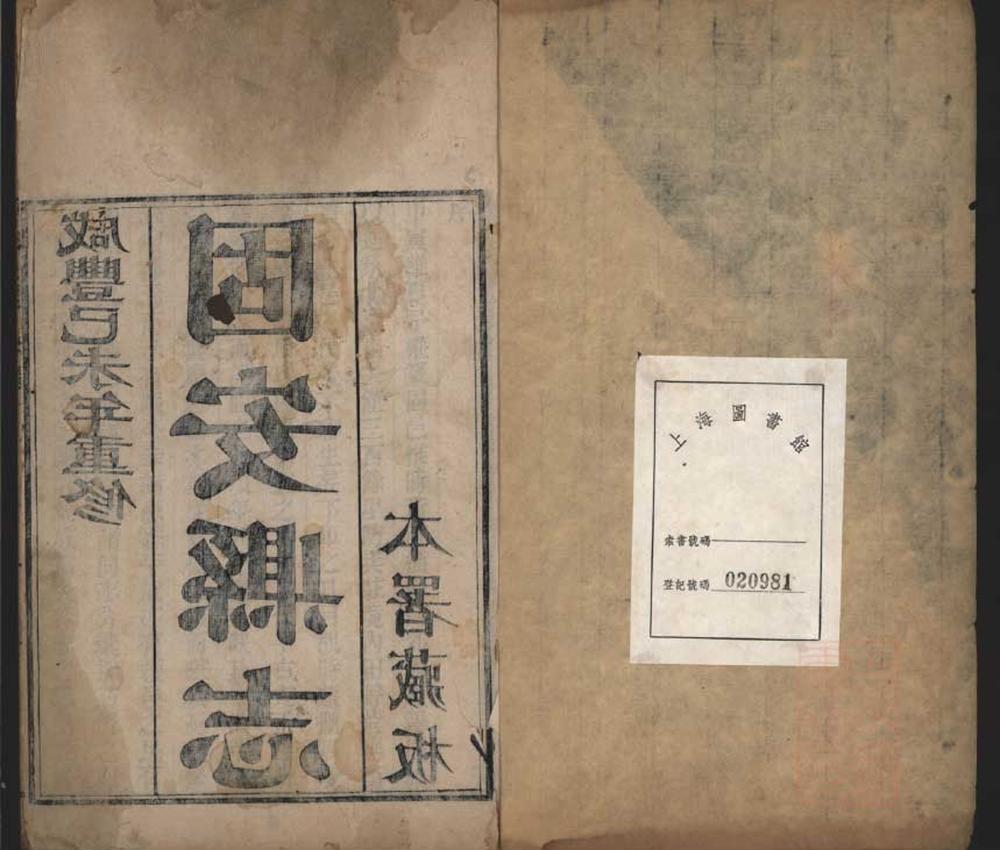 咸豐己未年重修
固安縣志
本署藏板
上海圖書館
索書號碼
登記號碼 020981